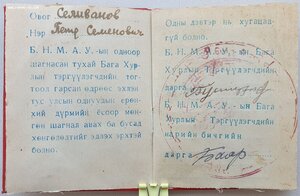 Овог Селиванов
Нэр Петр Семенович
Б. Н. М. А. У.-ын одноор
шагнасан тухай Бага Ху-
рлын Тэргүүлэгчдийн тог-
тоол гарсан өдрөөс эхлэн
тус улсын одиуудын ерөн-
хий дүрмийн ёсоор мөн-
гөн шагнал авах ба бусад
хөнгөлөлтийг эдлэх эрхтэй
болно.
Одны дэвтэр нь хугацаа-
гүй болно.
Б. Н. М. А. У.-ын Бага
Хурлын Тэргүүлэгчдийн
дарга
Б. Н. М. А. У.-ын Бага
Хурлын Тэргүүлэгчдийн
нарийн бичгийн
дарга